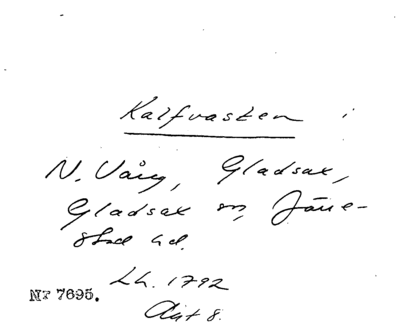 Kalfvasken i
N. Vång, Gladsax,
Gladsax sn, Järre-
stad hd.
Lh. 1792
Akt 8.
Nr 7695.